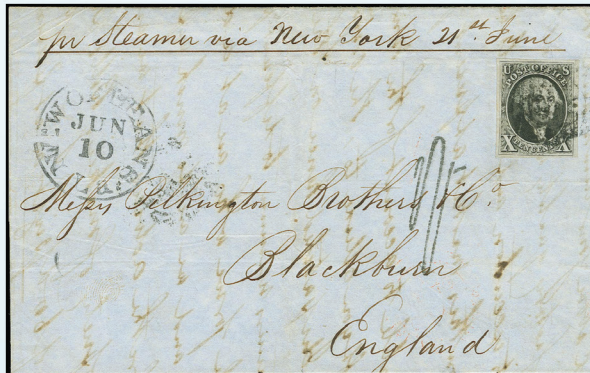 pr Steamer via New York 21st June
U S
POST OFFICE
X TEN CENTS X
NEW ORLEANS La
JUN
10
Messrs Pilkington Brothers & Co.
Blackburn
England